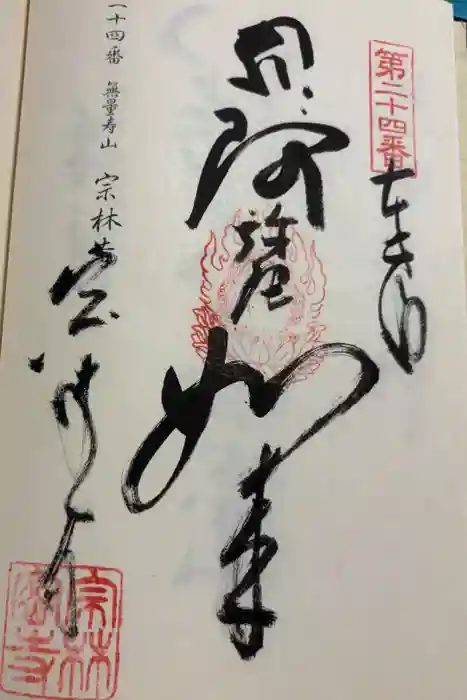 第二十四番
奉拝
阿弥陀如来
十四番 無量寿山 宗林寺
宗林寺
宗林